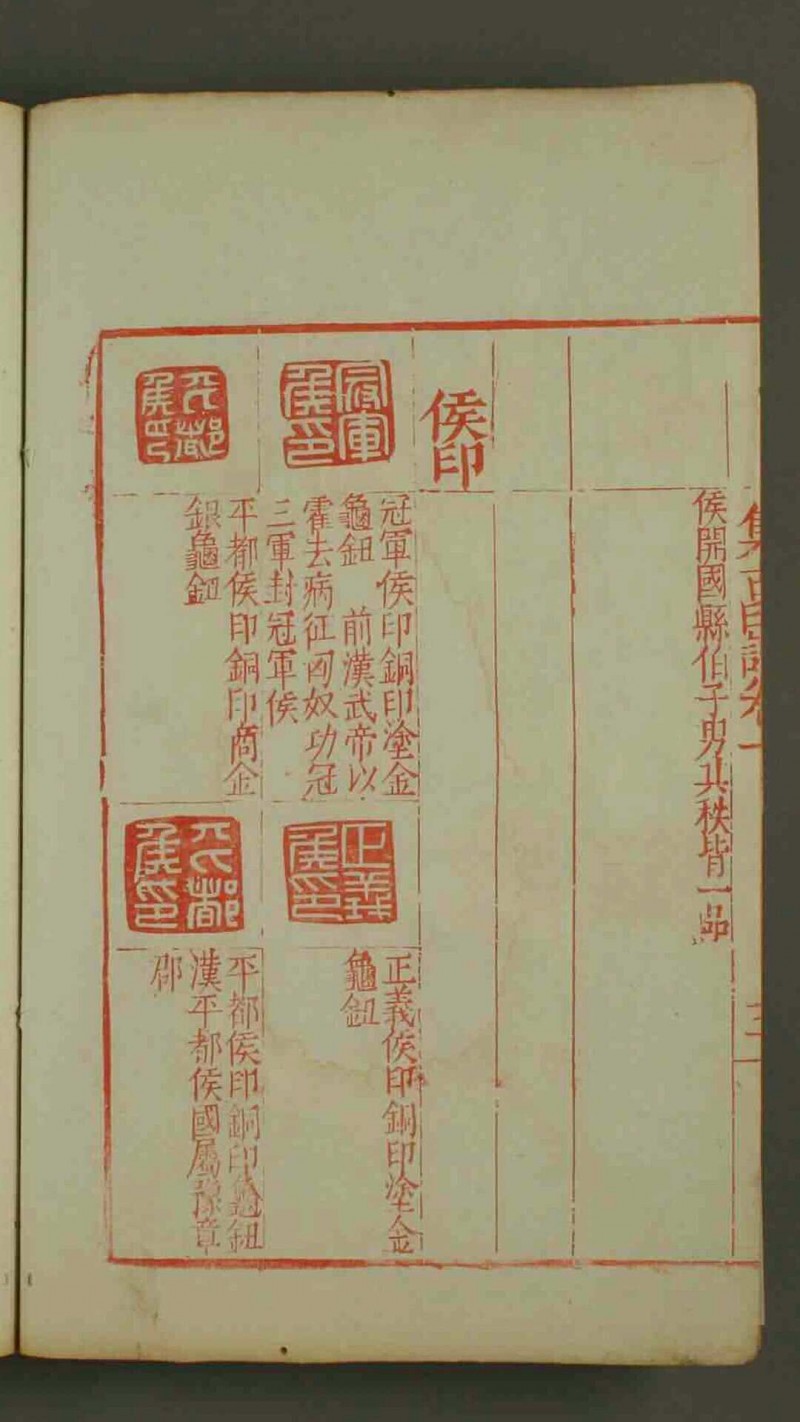 集古印譜卷一
侯開國縣伯子男其秩皆一品
侯印
冠軍侯印
冠軍侯印銅印塗金
龜鈕 前漢武帝以
霍去病征匈奴功冠
三軍封冠軍侯
正義侯印
正義侯印銅印塗金
龜鈕
平都侯印
平都侯印銅印商金
銀龜鈕
平都侯印
平都侯印銅印龜鈕
漢平都侯國屬豫章
郡